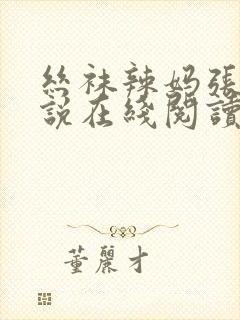 絲袜辣妈張
說在綫閱讀
董麗才